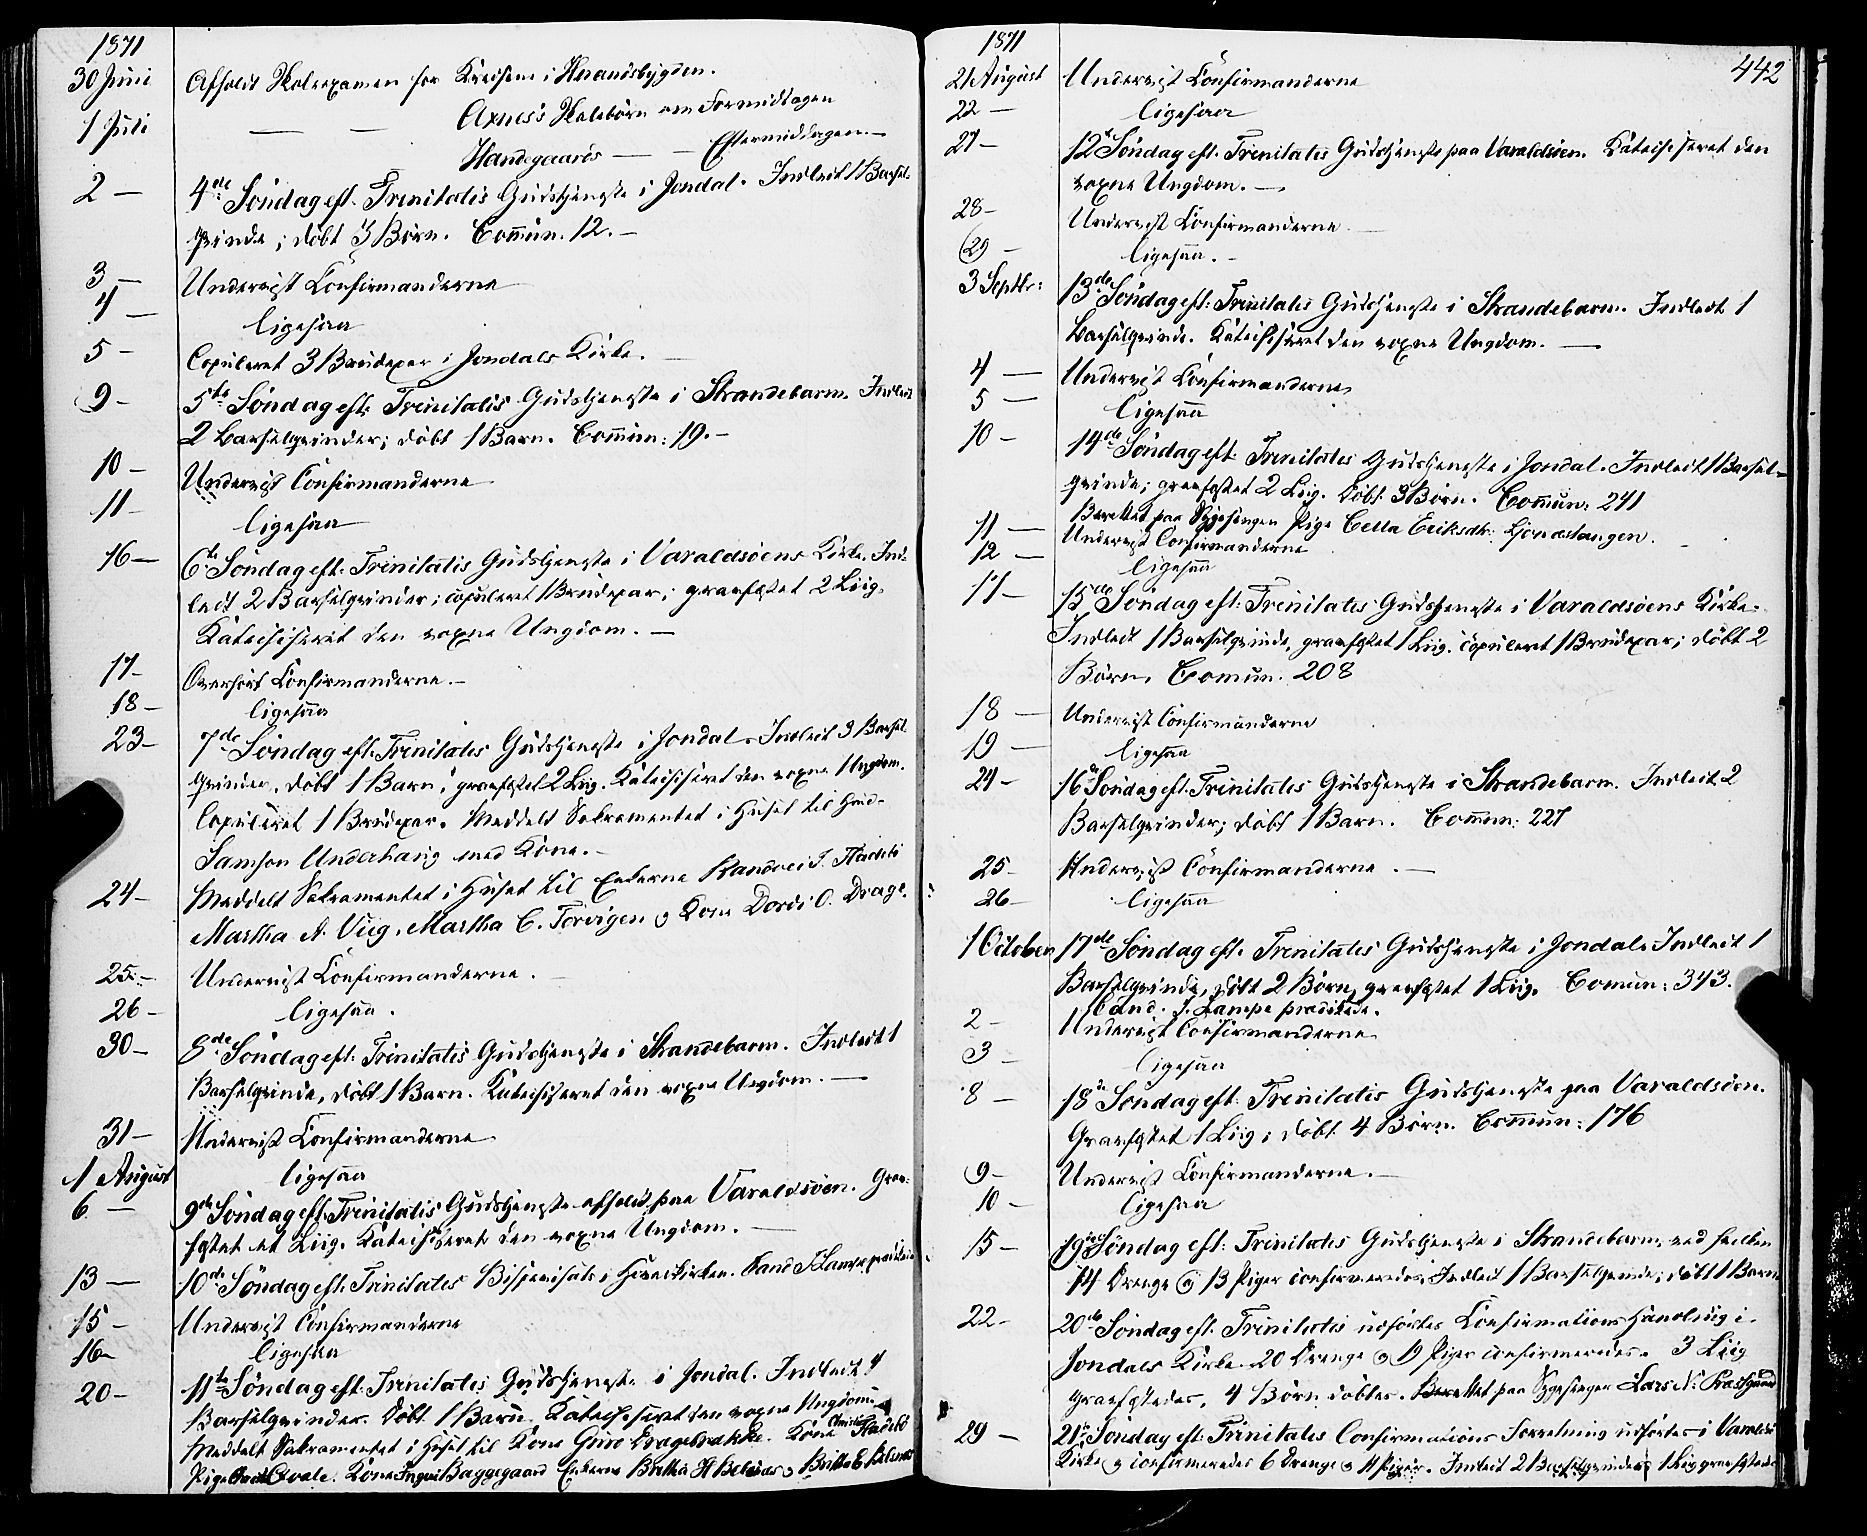 1871
30 Juni Afholdt Skoleexamen for Kredsene i Herandsbygden.
1 Juli — — Axnes's Skolebørn om Formiddagen
Handegaards — — Eftermiddagen.—
2 — 4de Søndag eft. Trinitatis Gudstjeneste i Jondal. Indledt 1 Barsel-
qvinde; døbt 3 Børn. Com̄un. 12.—
3 — Underviist Confirmanderne
4 — ligesaa
5 — Copuleret 3 Brudepar i Jondals Kirke.
9 — 5te Søndag eft. Trinitatis Gudstjeneste i Strandebarm. Indledt
2 Barselqvinder; døbt 1 Barn. Com̄un: 19.—
10 — Underviist Confirmanderne
11 — ligesaa
16 — 6te Søndag eft. Trinitatis Gudstjeneste i Varaldsøens Kirke. Ind-
ledt 2 Barselqvinder; copuleret 1 Brudepar; græsfæstet 2 Liig.
Katechiseret den voxne Ungdom.—
17 — Overhørt Confirmanderne.—
18 — ligesaa
23 — 7de Søndag eft. Trinitatis Gudstjeneste i Jondal. Indledt 3 Barsel
qvinder, døbt 1 Barn, græsfæstet 2 Liig. Katechiseret den voxne Ungdom.
Copuleret 1 Brudepar. Meddelt Sakramentet i Huset til
Samson Underhaug med Kone.—
24 — Meddelt Sakramentet i Huset til Enkerne
Martha A. Viig, Martha C. Torvigen og Kone Dordi O. Drage.
25 — Underviist Confirmanderne.
26 — ligesaa.
30 — 8de Søndag eft. Trinitatis Gudstjeneste i Strandebarm. Indledt 1
Barselqvinde, døbt 1 Barn. Katechiseret den voxne Ungdom.—
31 — Underviist Confirmanderne
1 August ligesaa
6 — 9de Søndag eft. Trinitatis Gudstjeneste afholdt paa Varaldsøen. Græs-
fæstet et Liig. Katechiseret den voxne Ungdom.—
13 — 10de Søndag eft. Trinitatis Bispevisats i Hovedkirken. Cand J. Lampe prædikede
15 — Underviist Confirmanderne
16 — ligesaa
20 — 11te Søndag eft. Trinitatis Gudstjeneste i Jondal. Indledt 4
Barselqvinder. Døbt 1 Barn. Katechiseret den voxne Ungdom.
Meddelt Sakramentet i Huset til Kone Guro Kone
Pige Qvale. Kone Baggegaard Enkerne Britha H Belsnes og Britha E Belsnes
1871 442
21 August Underviist Confirmanderne
22 — ligesaa
27 — 12te Søndag eft. Trinitatis Gudstjeneste paa Varaldsøen. Katechiseret den
voxne Ungdom.—
28 — Underviist Confirmanderne
29 — ligesaa.—
3 Septbr: 13de Søndag eft: Trinitatis Gudstjeneste i Strandebarm. Indledt 1
Barselqvinde. Katechiseret den voxne Ungdom.—
4 — Underviist Confirmanderne
5 — ligesaa
10 — 14de Søndag eft. Trinitatis Gudstjeneste i Jondal. Indledt 1 Barsel-
qvinde; græsfæstet 2 Liig. Døbt 3 Børn. Com̄un: 241
Berettet paa Sygesengen Pige Cella Eriksdtr.
11 — Underviist Confirmanderne
12 — ligesaa
17 — 15de Søndag eft: Trinitatis Gudstjeneste i Varaldsøens Kirke.
Indledt 1 Barselqvinde, græsfæstet 1 Liig. copuleret 1 Brudepar; døbt 2
Børn. Comun. 208
18 — Underviist Confirmanderne
19 — ligesaa
24 — 16de Søndag eft. Trinitatis Gudstjeneste i Strandebarm. Indledt 2
Barselqvinder; døbt 1 Barn. Com̄un: 227
25 — Underviist Confirmanderne.—
26 — ligesaa
1 October 17de Søndag eft. Trinitatis Gudstjeneste i Jondal. Indledt 1
Barselqvinde, døbt 2 Børn, græsfæstet 1 Liig. Comun: 343.
Cand. J. Lampe prædikede.
2 — Underviist Confirmanderne
3 — ligesaa
8 — 18de Søndag eft. Trinitatis Gudstjeneste paa Varaldsøen.
Græsfæstet 1 Liig; døbt 4 Børn. Com̄un: 176
9 — Underviist Confirmanderne.—
10 — ligesaa
15 — 19de Søndag eft: Trinitatis Gudstjeneste i Strandebarm, ved hvilken
14 Drenge og 13 Piger confirmeredes. Indledt 1 Barselqvinde; døbt 1 Barn
22 — 20de Søndag eft. Trinitatis udførtes Confirmations Handling i
Jondals Kirke. 20 Drenge og 19 Piger confirmeredes. 3 Liig
græsfæstedes, 4 Børn døbtes. Berettet paa Sygesengen Lars N. Præstgaard
29 — 21de Søndag eft. Trinitatis Confirmations Forretning udførtes i Varaldsø
Kirke og confirmeredes 6 Drenge og 11 Piger. Indledt 2 Barselqvinder; 1 Liig græsfæstedes